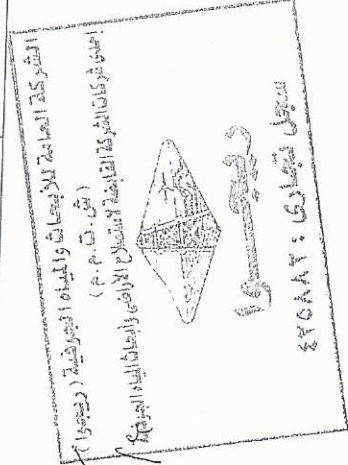 الشركة العامة للأبحاث والمياه الجوفية (ريجوا)
(ش . ت . م . م)
إحدى شركات الشركة القابضة لاستصلاح الأراضى وأبحاث المياه الجوفية
ريجوا
سجل تجارى :